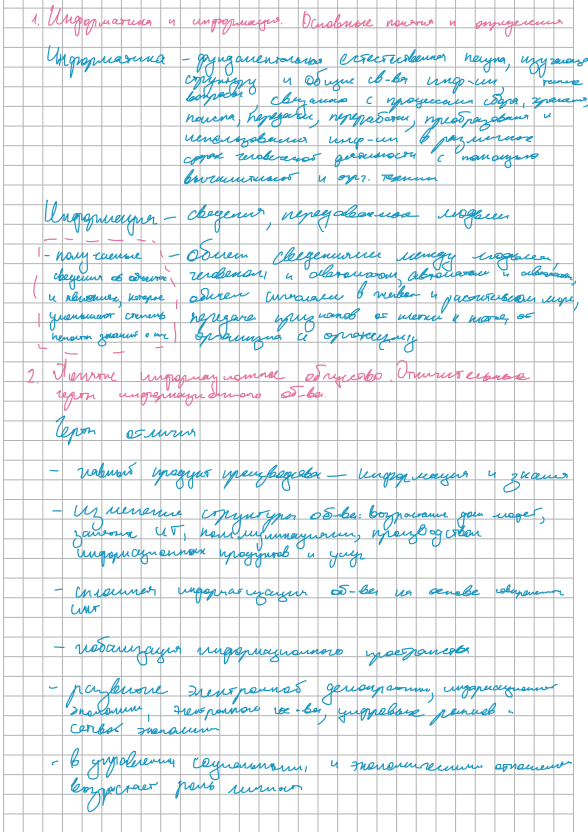 1. Информатика и информация. Основные понятия и определения
Информатика – фундаментальная естественная наука, изучающая
структуру и общие св-ва инф-ии, также
вопросы, связанные с процессами сбора, хранения,
поиска, передачи, переработки, преобразования и
использования инф-ии в различных
сферах человеческой деятельности с помощью
вычислительной и орг. техники
Информация – сведения, передаваемые людьми
- полученные
сведения об объектах
и явлениях, которые
уменьшают степень
неполноты знаний о них
– обмен сведениями между людьми,
человеком и автоматом, автоматом и автоматом,
обмен сигналами в живом и растительном мире,
передача признаков от клетки к клетке, от
организма к организму
2. Понятие информационное общество. Отличительные
черты информационного об-ва.
Черты отличия
– главный продукт производства – информация и знания
– изменение структуры об-ва: возрастание доли людей,
занятых ИТ, коммуникациями, производством
информационных продуктов и услуг
– сплошная информатизация об-ва на основе современных
– глобализация информационного пространства
– развитие электронной демократии, информационной
экономики, электронного гос-ва, цифровых рынков
сетевой экономики
- в управлении социальными, и экономическими отношениями
возрастает роль личности